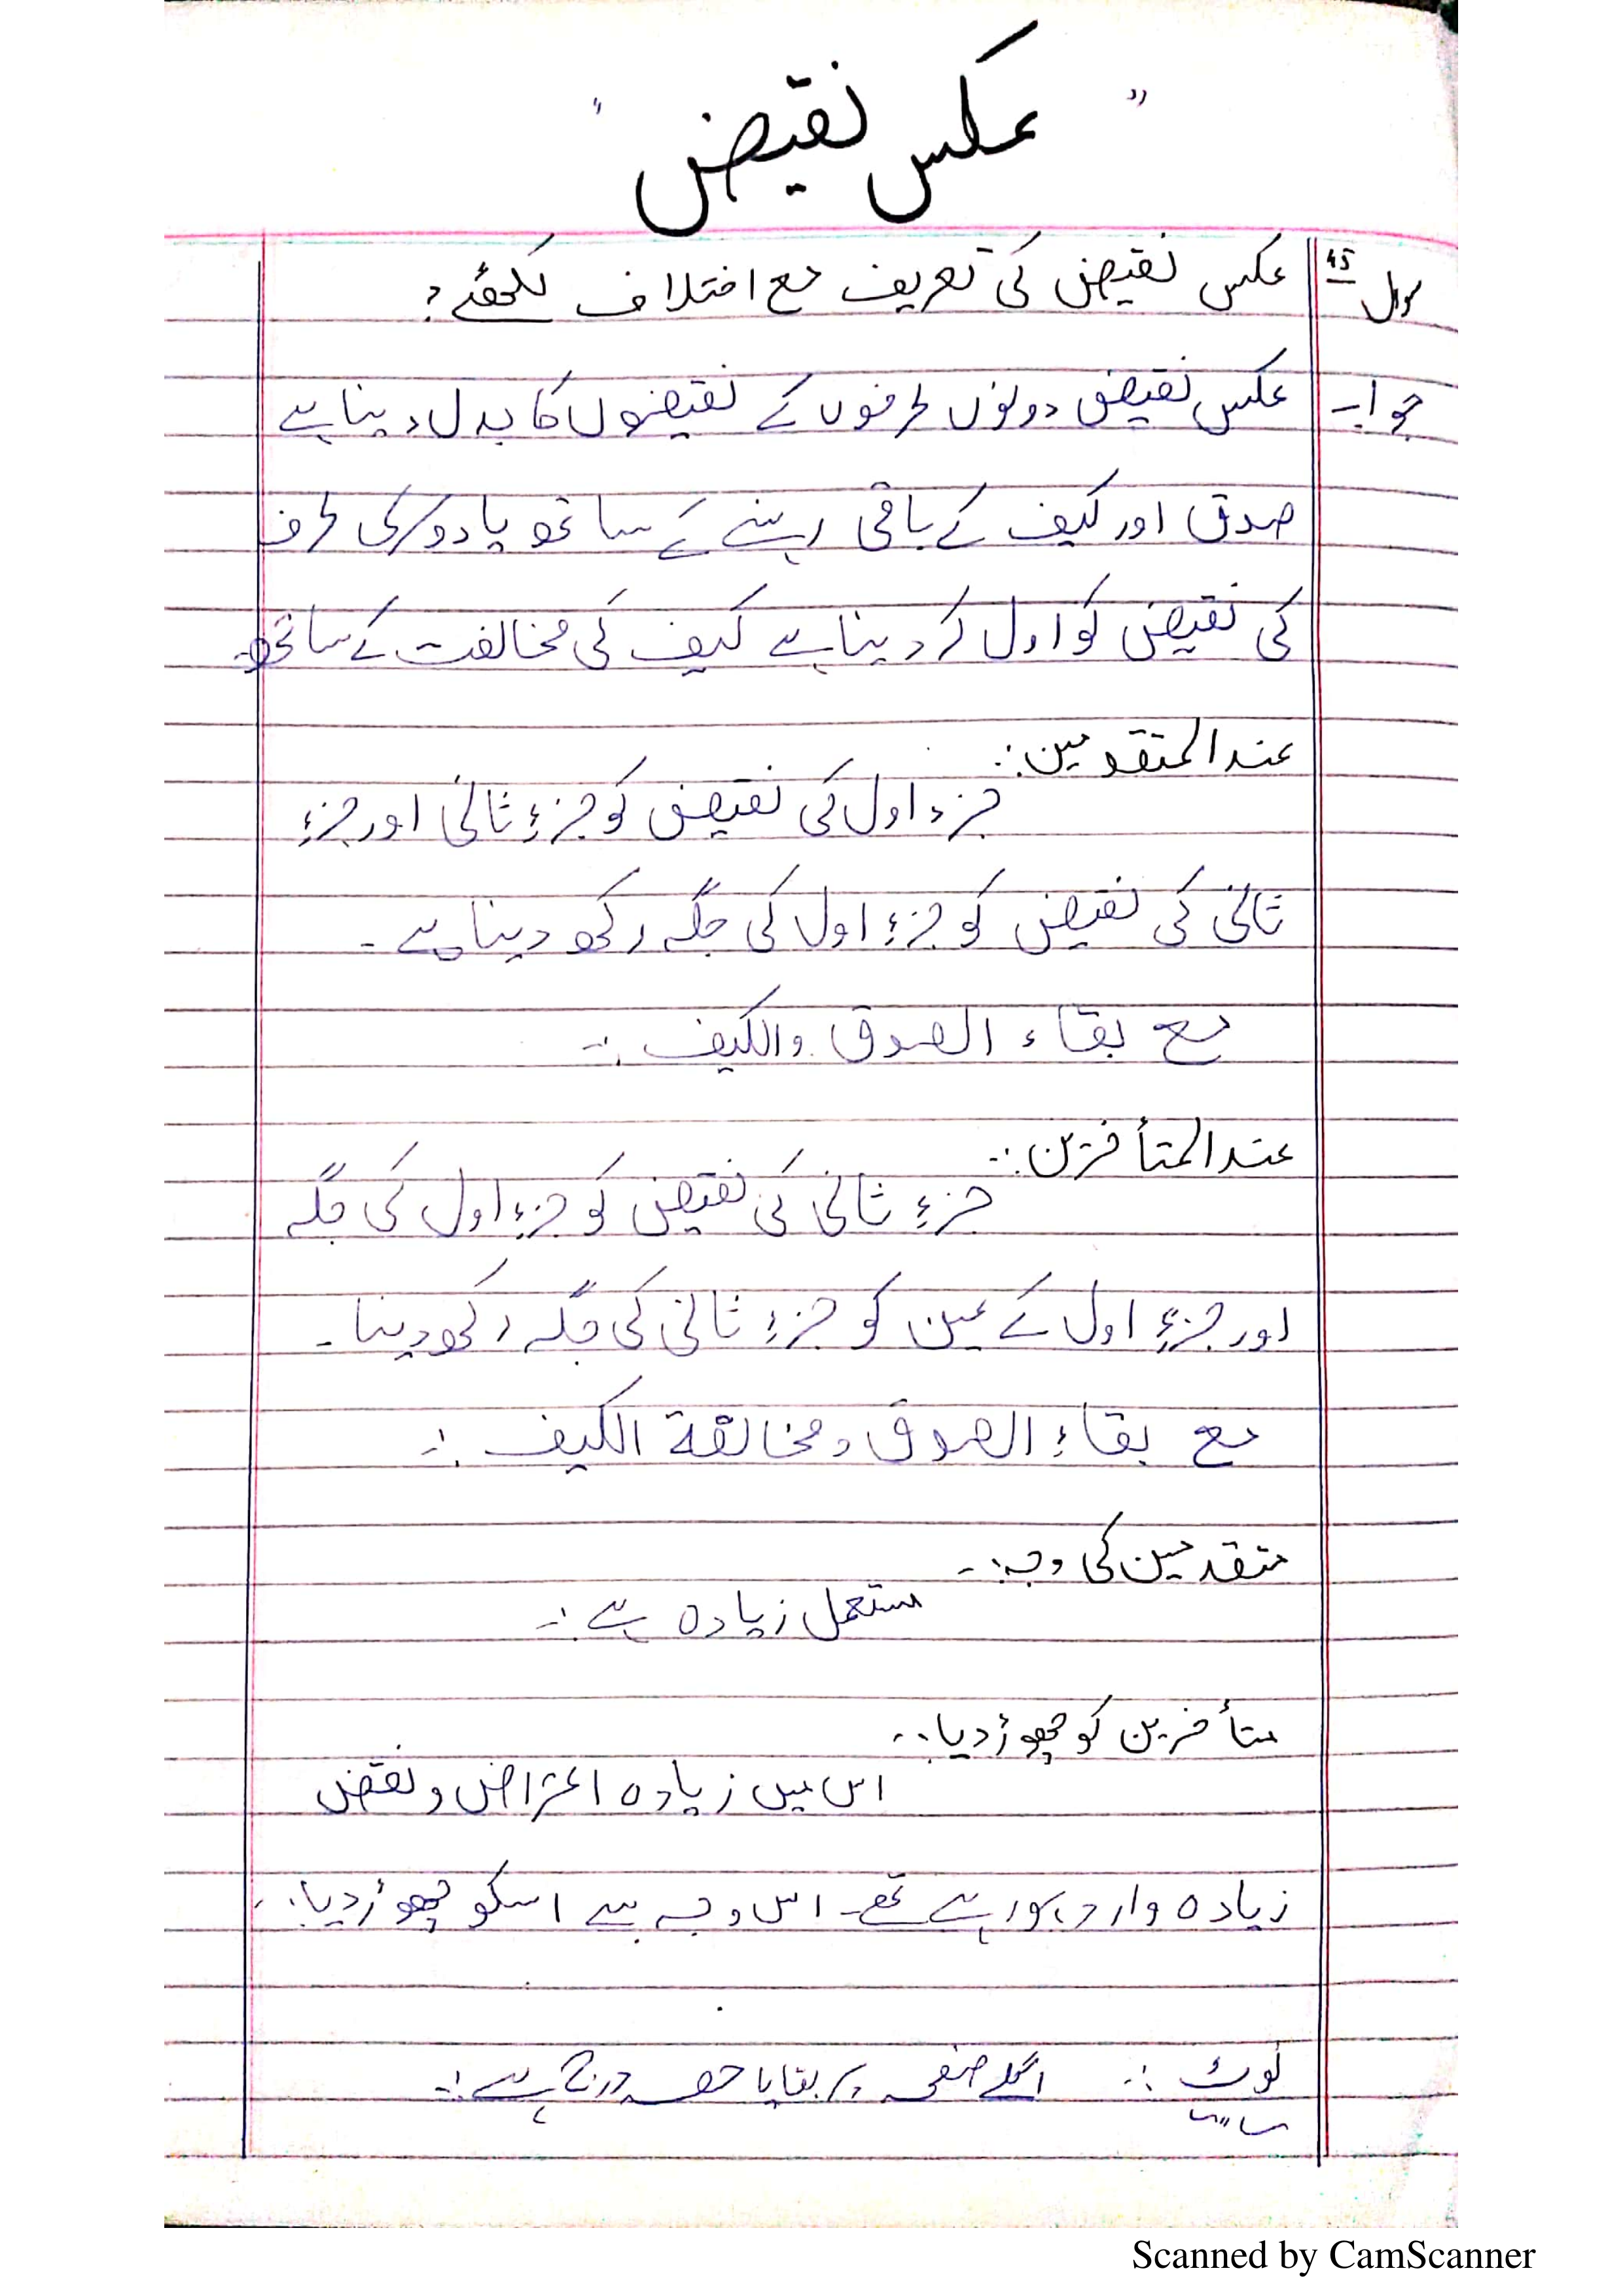 "عکس نقیض"
سوال 45 عکس نقیض کی تعریف مع اختلاف لکھئے؟
جواب عکس نقیض دونوں طرفوں کے نقیضوں کا بدل دینا ہے
صدق اور کیف کے باقی رہنے کے ساتھ یا دوسری طرف
کی نقیض کو اول کر دینا ہے کیف کی مخالفت کے ساتھ۔
عند المتقدمین:۔
جزء اول کی نقیض کو جزءِ ثانی اور جزءِ
ثانی کی نقیض کو جزءِ اول کی جگہ رکھ دینا ہے۔
مع بقاء الصدق والکیف :۔
عند المتأخرین :۔
جزءِ ثانی کی نقیض کو جزءِ اول کی جگہ
اور جزءِ اول کے عین کو جزءِ ثانی کی جگہ رکھ دینا۔
مع بقاءِ الصدق ومخالفة الکیف :۔
متقدمین کی وجہ :۔
مستعمل زیادہ ہے :۔
متأخرین کو چھوڑ دیا :۔
اس میں زیادہ اعتراض ونقض
زیادہ وارد ہو رہے تھے۔ اس وجہ سے اسکو چھوڑ دیا :۔
نوٹ :۔ اگلے صفحہ پر بقایا حصہ درج ہے :۔
Scanned by CamScanner